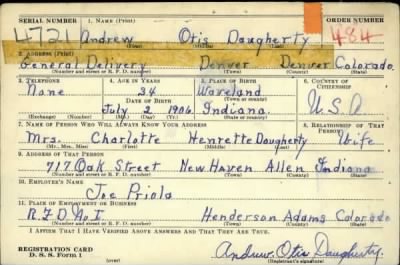 SERIAL NUMBER 1. NAME (Print) ORDER NUMBER
4721 Andrew Otis Daugherty 484
(First) (Middle) (Last)
2. ADDRESS (Print)
General Delivery Denver Denver Colorado
(Number and street or R. F. D. number) (Town) (County) (State)
3. TELEPHONE 4. AGE IN YEARS 5. PLACE OF BIRTH 6. COUNTRY OF CITIZENSHIP
None 34 Waveland
DATE OF BIRTH (Town or county)
July 2 1906 Indiana. U.S.A
(Exchange) (Number) (Mo.) (Day) (Yr.) (State or country)
7. NAME OF PERSON WHO WILL ALWAYS KNOW YOUR ADDRESS 8. RELATIONSHIP OF THAT PERSON
Mrs. Charlotte Henrette Daugherty Wife
(Mr., Mrs., Miss) (First) (Middle) (Last)
9. ADDRESS OF THAT PERSON
717 Oak Street New Haven Allen Indiana
(Number and street or R. F. D. number) (Town) (County) (State)
10. EMPLOYER'S NAME
Joe Priola
11. PLACE OF EMPLOYMENT OR BUSINESS
R.F.D No. 1 Henderson Adams Colorado
(Number and street or R. F. D. number) (Town) (County) (State)
I AFFIRM THAT I HAVE VERIFIED ABOVE ANSWERS AND THAT THEY ARE TRUE.
REGISTRATION CARD
D. S. S. Form 1 Andrew Otis Daugherty.
(over) (Registrant's signature)